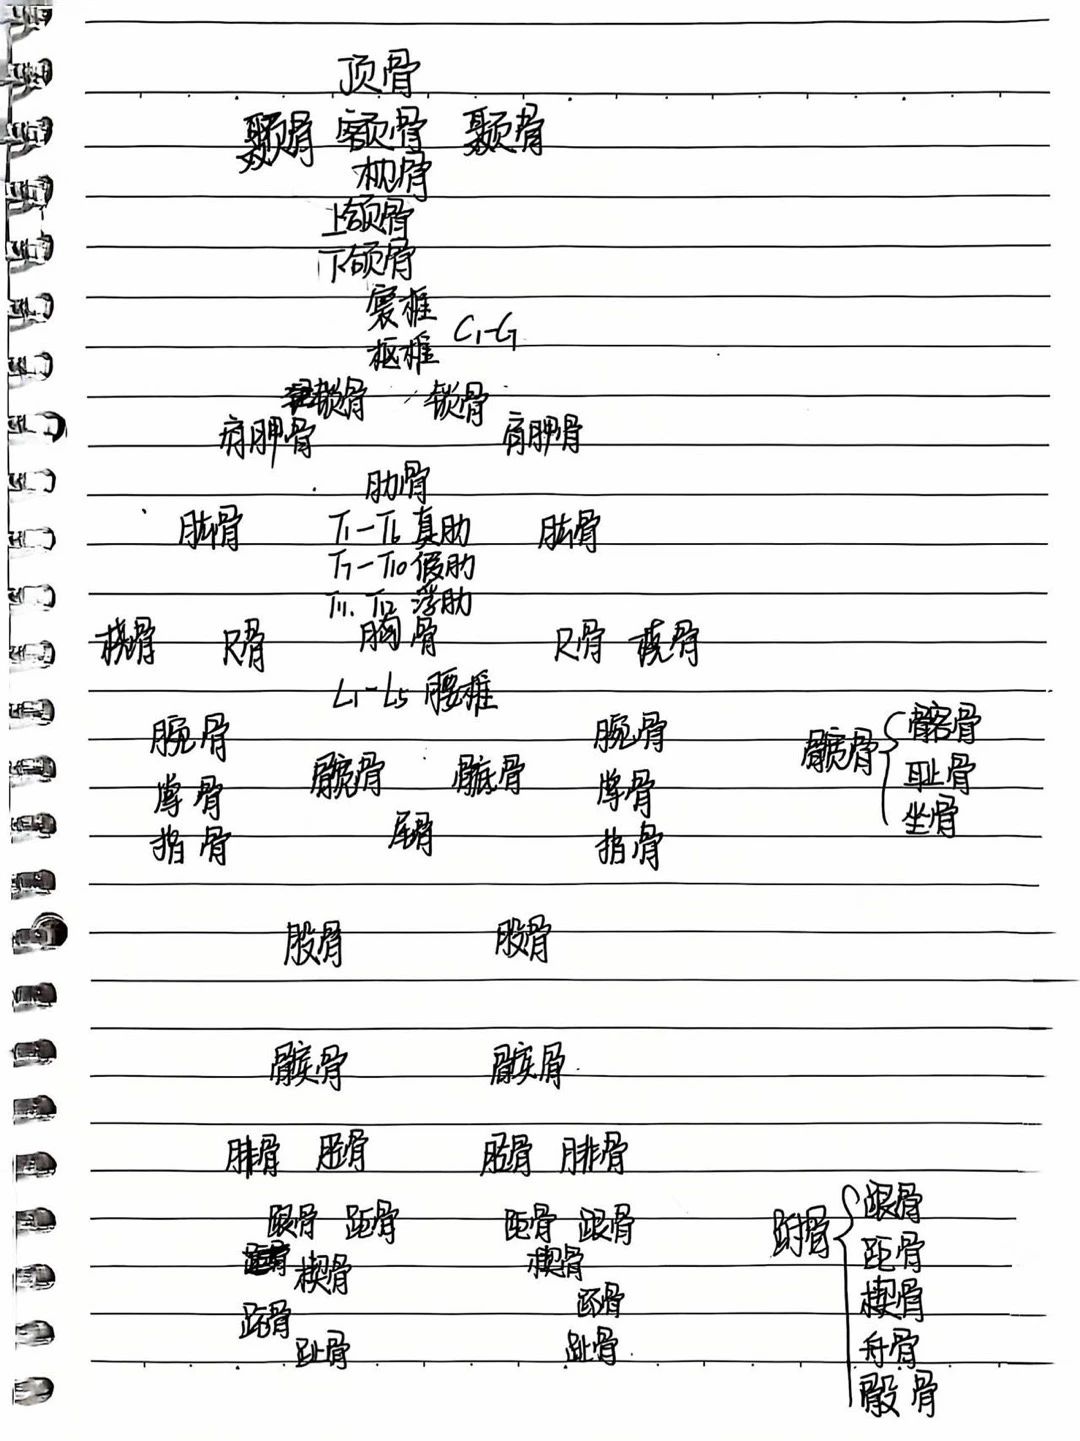 顶骨
颞骨 额骨 颞骨
枕骨
上颌骨
下颌骨
寰椎
枢椎 C₁-C₇
锁骨 锁骨
肩胛骨 肩胛骨
肋骨
肱骨 T₁-T₆ 真肋 肱骨
T₇-T₁₀ 假肋
T₁₁、T₁₂ 浮肋
桡骨 尺骨 胸骨 尺骨 桡骨
L₁-L₅ 腰椎
腕骨 腕骨
髋骨 骶骨
掌骨 掌骨
指骨 尾骨 指骨
髋骨 { 髂骨
耻骨
坐骨
股骨 股骨
髌骨 髌骨
腓骨 胫骨 胫骨 腓骨
跟骨 距骨 距骨 跟骨
楔骨 楔骨
跖骨 跖骨
趾骨 趾骨
跗骨 { 跟骨
距骨
楔骨
舟骨
骰骨